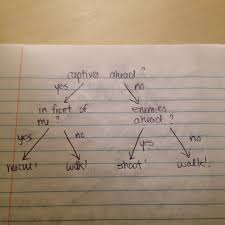 captives ahead?
yes no
in front of enemies
me? ahead?
yes no yes no
rescue! walk! shoot! walk!